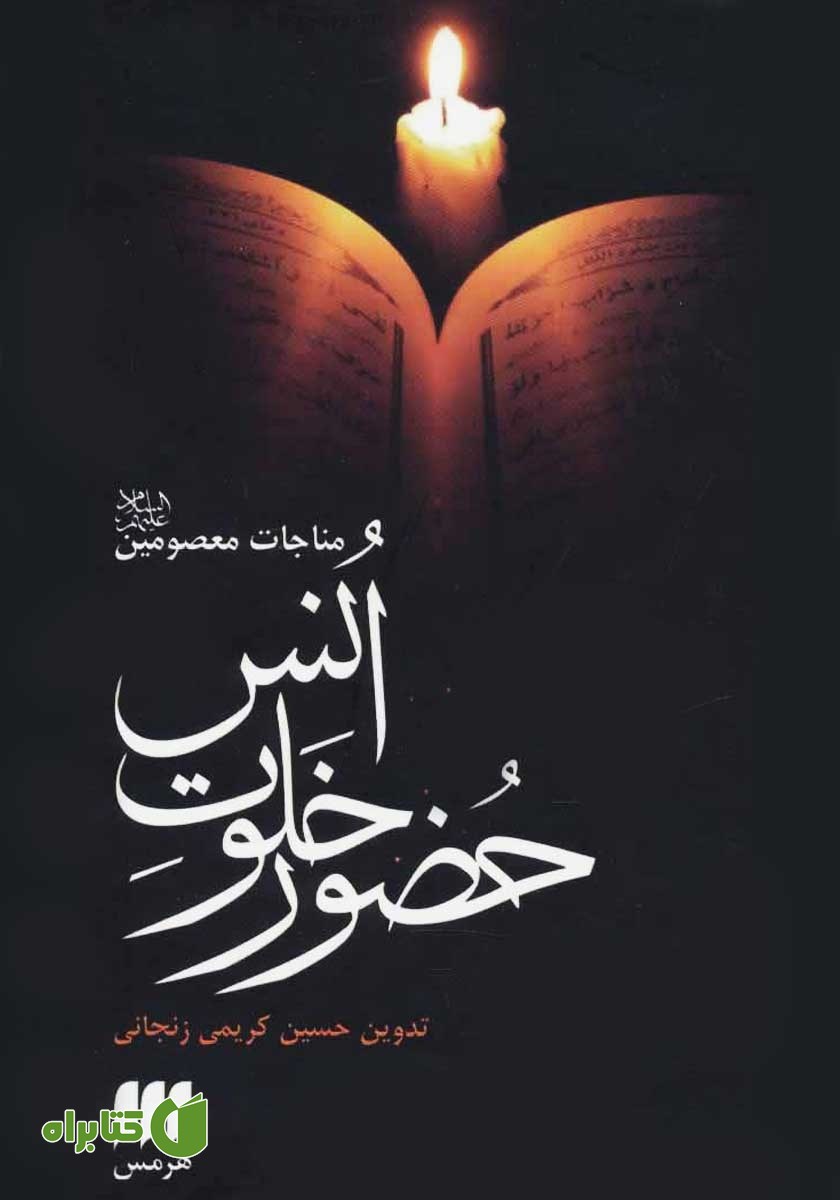 علیهم السلام
مناجات معصومین
حُضور خَلوَتِ
اُنس
تدوین حسین کریمی زنجانی
کتابراه
هرمس